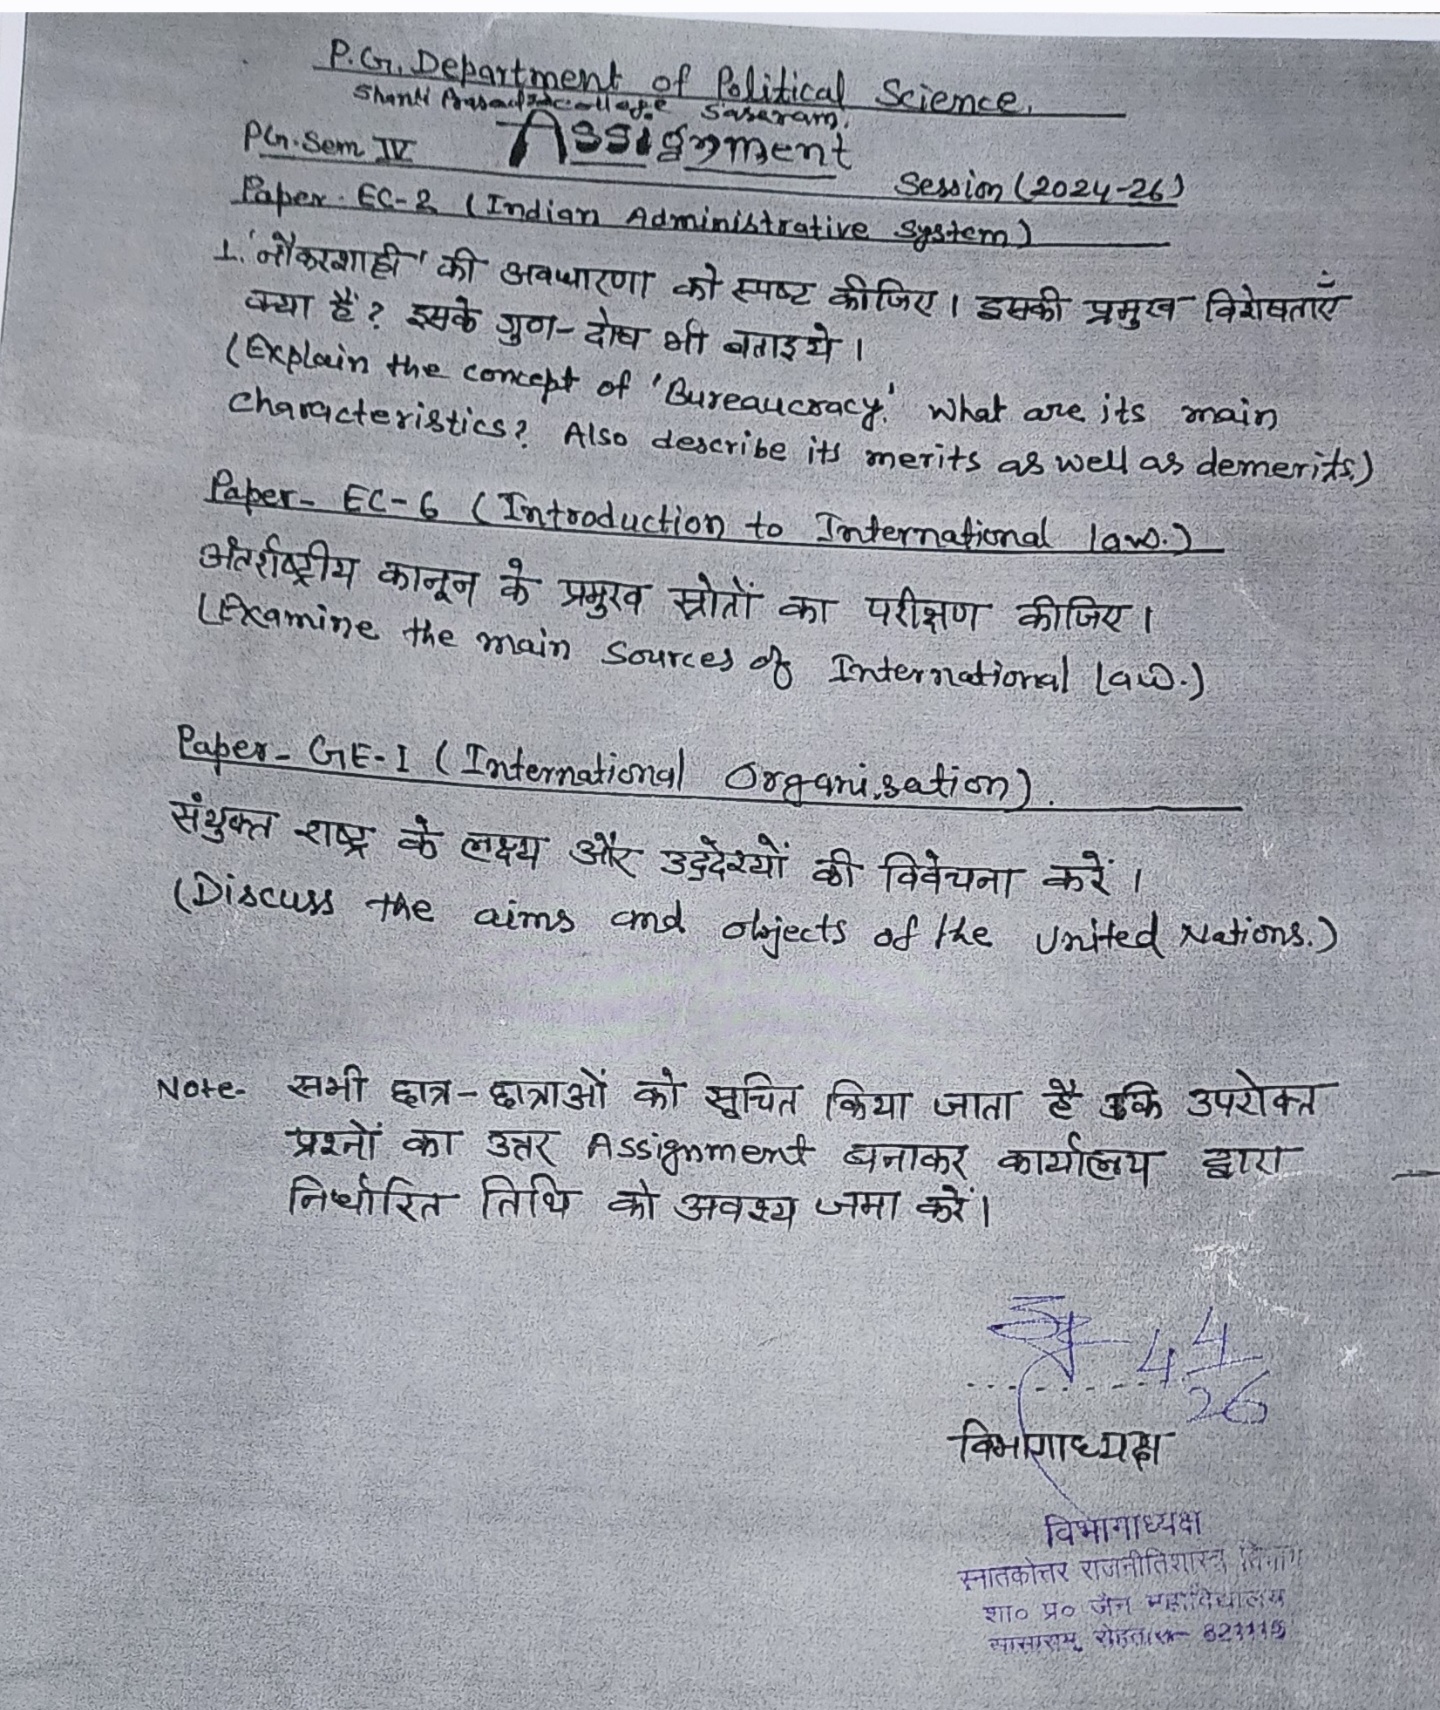 P.G. Department of Political Science.
Shanti Prasad Jain College Sasaram.
PG. Sem IV Assignment
Session (2024-26)
Paper - EC-2 (Indian Administrative System)
1. 'नौकरशाही' की अवधारणा को स्पष्ट कीजिए। इसकी प्रमुख विशेषताएँ
क्या हैं? इसके गुण-दोष भी बताइये।
(Explain the concept of 'Bureaucracy'. What are its main
characteristics? Also describe its merits as well as demerits.)
Paper- EC-6 (Introduction to International law.)
अंतर्राष्ट्रीय कानून के प्रमुख स्रोतों का परीक्षण कीजिए।
(Examine the main Sources of International law.)
Paper- GE-I (International Organisation).
संयुक्त राष्ट्र के लक्ष्य और उद्देश्यों की विवेचना करें।
(Discuss the aims and objects of the United Nations.)
Note- सभी छात्र-छात्राओं को सूचित किया जाता है कि उपरोक्त
प्रश्नों का उत्तर Assignment बनाकर कार्यालय द्वारा
निर्धारित तिथि को अवश्य जमा करें।
4.4
26
विभागाध्यक्ष
विभागाध्यक्ष
स्नातकोत्तर राजनीतिशास्त्र विभाग
शा० प्र० जैन महाविद्यालय
सासाराम, रोहतास-